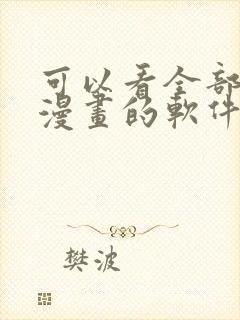 可以看全部
漫畫的軟件
樊波